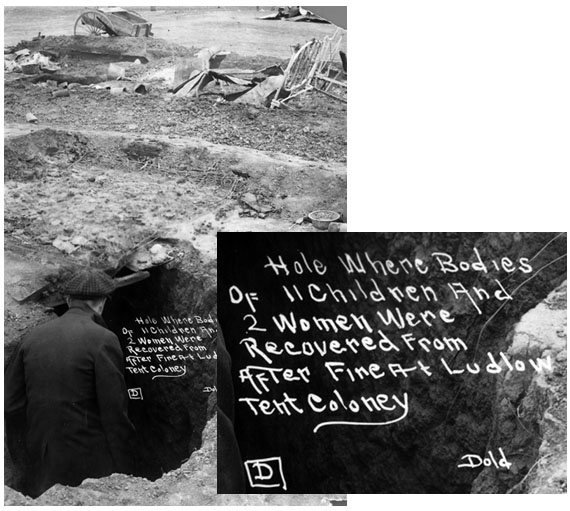 Hole Where Bodi
Of 11 Children An
2 Women Were
Recovered From
After Fire At Lud
Tent Coloney
D
Hole Where Bodies
Of 11 Children And
2 Women Were
Recovered From
After Fire At Ludlow
Tent Coloney
D
Dold